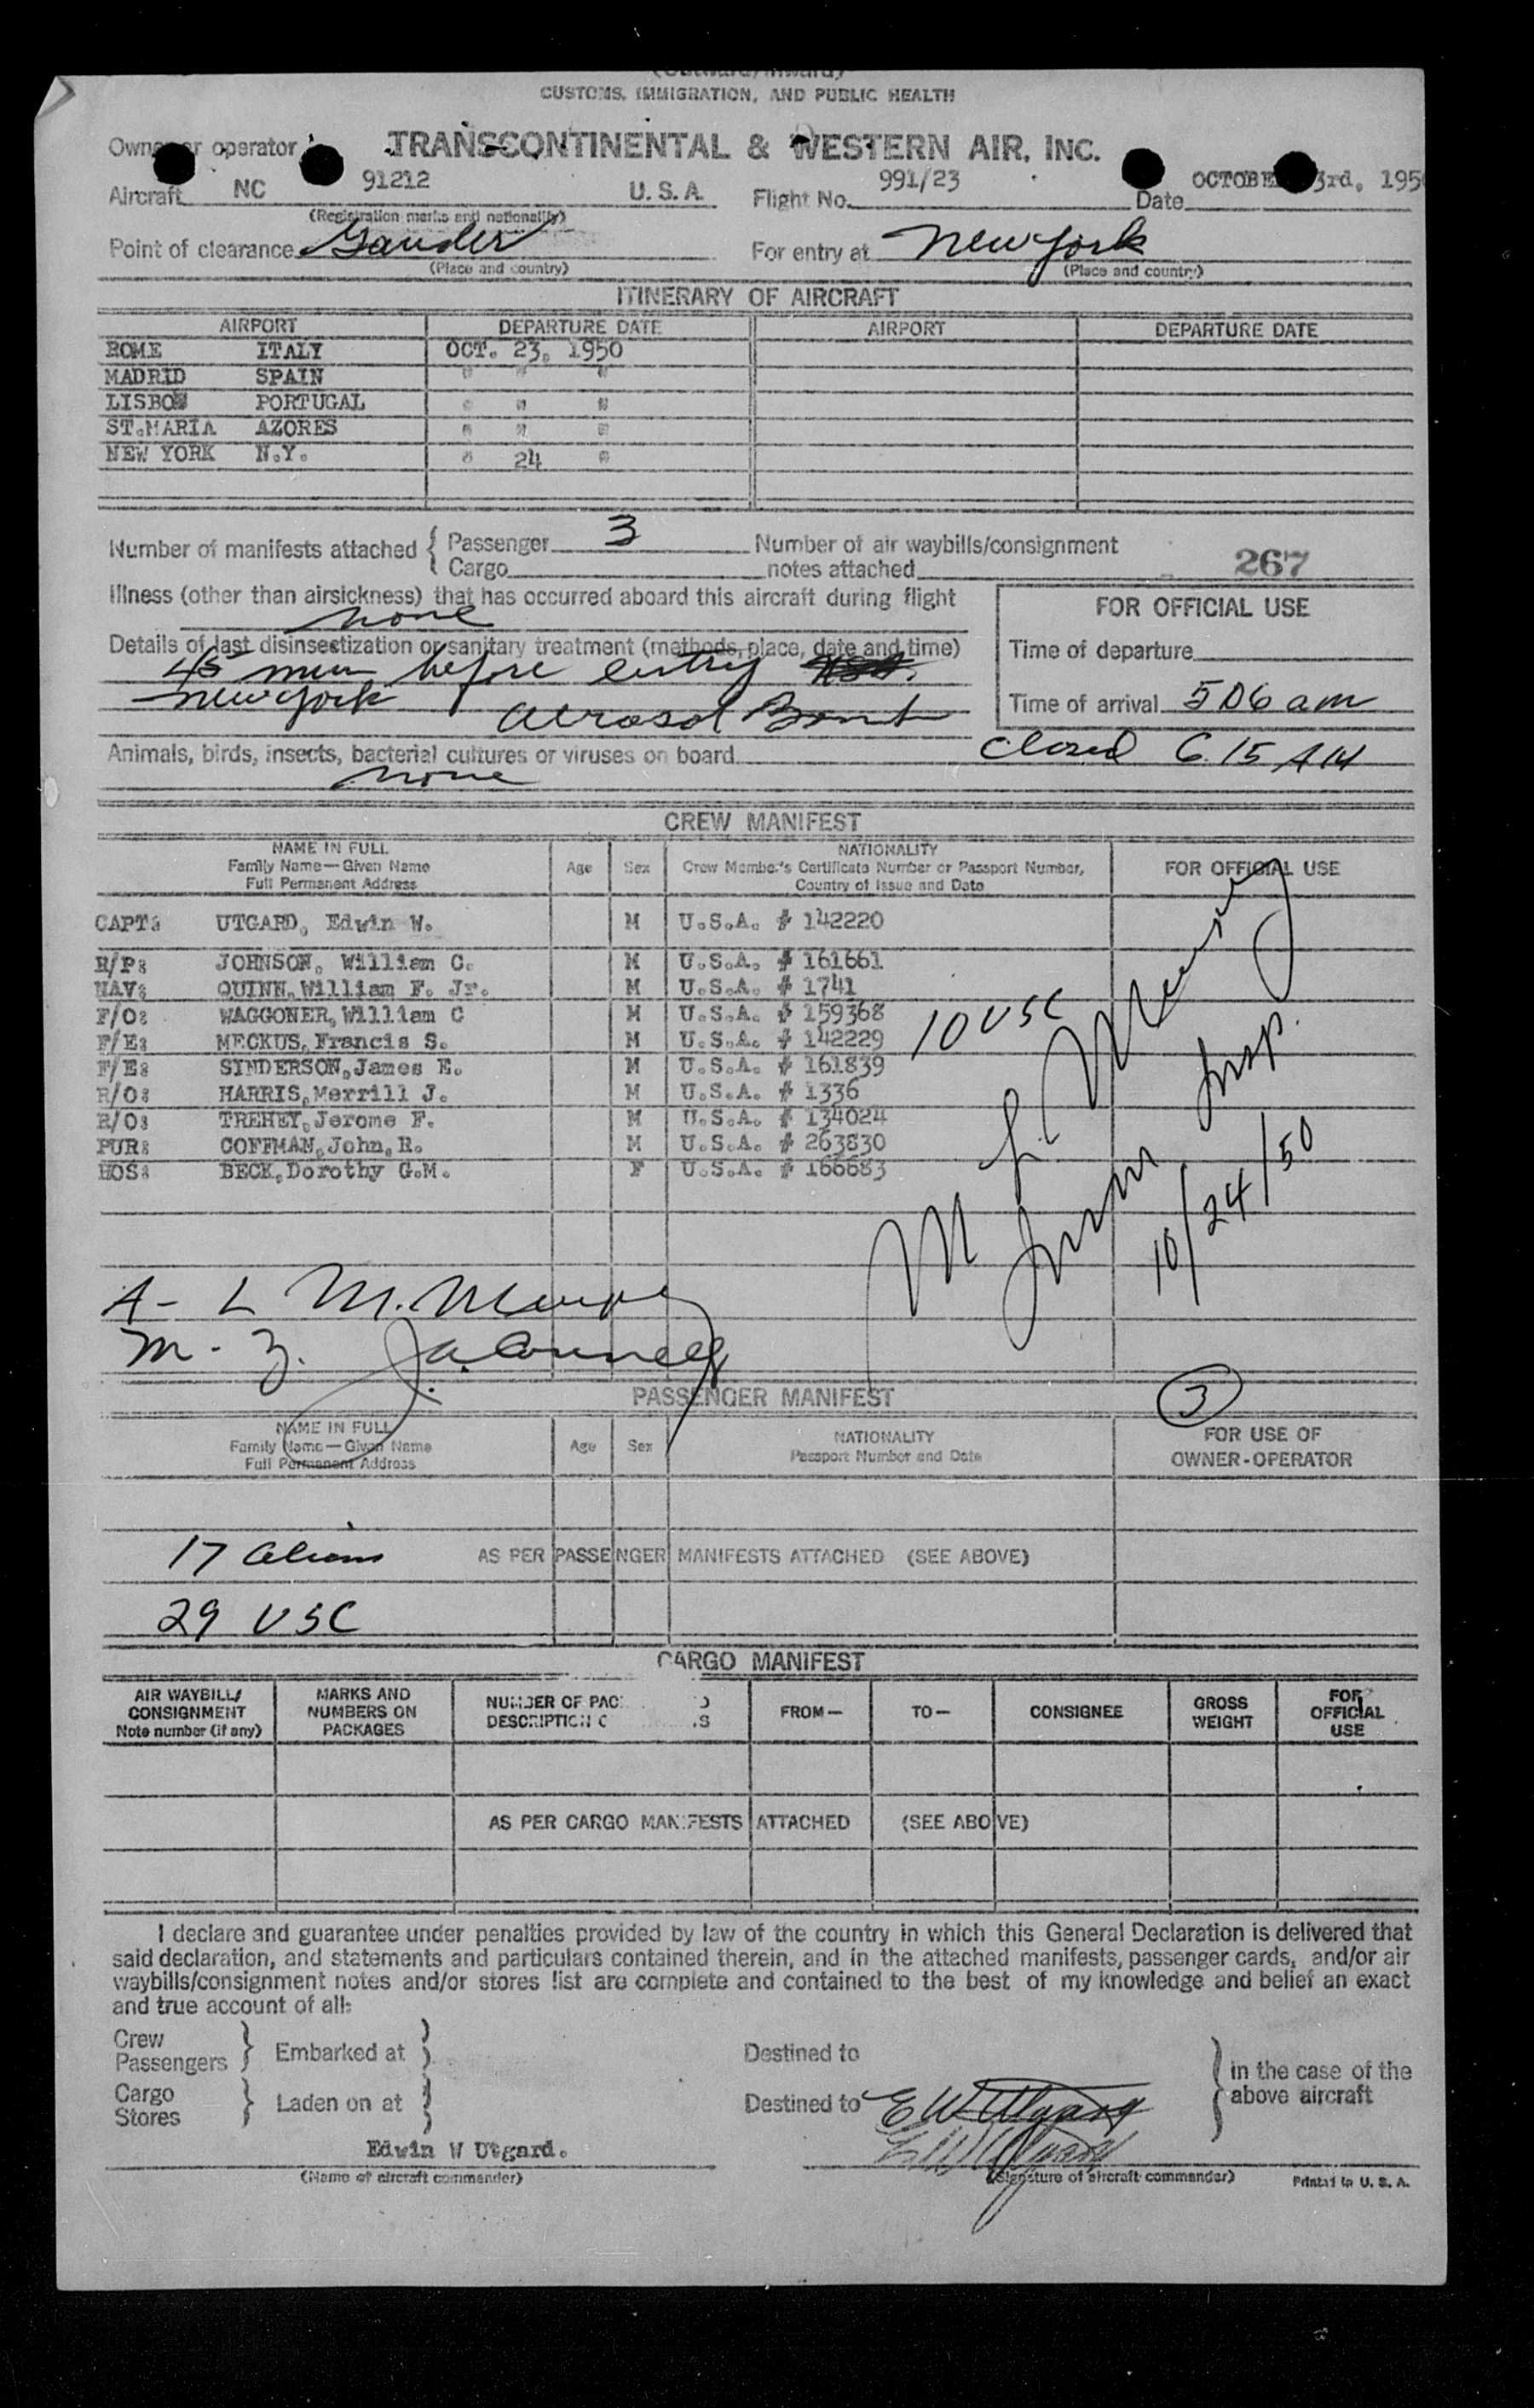 (Outward/Inward)
CUSTOMS, IMMIGRATION, AND PUBLIC HEALTH
Owner or operator TRANSCONTINENTAL & WESTERN AIR, INC.
Aircraft NC 91212 U.S.A. Flight No. 991/23 Date OCTOBER 3rd, 195
(Registration marks and nationality)
Point of clearance Gander For entry at New York
(Place and country) (Place and country)
ITINERARY OF AIRCRAFT
AIRPORT DEPARTURE DATE AIRPORT DEPARTURE DATE
ROME ITALY OCT. 23, 1950
MADRID SPAIN " " "
LISBON PORTUGAL " " "
ST.MARIA AZORES " " "
NEW YORK N.Y. " 24 "
Number of manifests attached { Passenger 3 Number of air waybills/consignment
Cargo notes attached 267
Illness (other than airsickness) that has occurred aboard this aircraft during flight
none
FOR OFFICIAL USE
Details of last disinsectization or sanitary treatment (methods, place, date and time)
45 min before entry
New York Aerosol Bomb
Time of departure
Time of arrival 506 am
Animals, birds, insects, bacterial cultures or viruses on board closed 6.15 AM
none
CREW MANIFEST
NAME IN FULL
Family Name—Given Name
Full Permanent Address
Age Sex
NATIONALITY
Crew Member's Certificate Number or Passport Number,
Country of Issue and Date
FOR OFFICIAL USE
CAPT: UTGARD, Edwin W. M U.S.A. # 142220
R/P: JOHNSON, William C. M U.S.A. # 161661
NAV: QUINN,William F. Jr. M U.S.A. # 1741
F/O: WAGGONER,William C M U.S.A. # 159368
F/E: MECKUS,Francis S. M U.S.A. # 142229
F/E: SINDERSON,James E. M U.S.A. # 161839
R/O: HARRIS,Merrill J. M U.S.A. # 1336
R/O: TREHEY,Jerome F. M U.S.A. # 134024
PUR: COFFMAN,John,R. M U.S.A. # 263830
HOS: BECK,Dorothy G.M. F U.S.A. # 166683
10 USC
Immn Insp.
10/24/50
A - L M.
M - Z. J.
PASSENGER MANIFEST
3
NAME IN FULL
Family Name—Given Name
Full Permanent Address
Age Sex
NATIONALITY
Passport Number and Date
FOR USE OF
OWNER-OPERATOR
17 Aliens AS PER PASSENGER MANIFESTS ATTACHED (SEE ABOVE)
29 USC
CARGO MANIFEST
AIR WAYBILL/
CONSIGNMENT
Note number (if any)
MARKS AND
NUMBERS ON
PACKAGES
NUMBER OF PAC
DESCRIPTION O S
FROM— TO— CONSIGNEE
GROSS
WEIGHT
FOR
OFFICIAL
USE
AS PER CARGO MANIFESTS ATTACHED (SEE ABOVE)
I declare and guarantee under penalties provided by law of the country in which this General Declaration is delivered that
said declaration, and statements and particulars contained therein, and in the attached manifests, passenger cards, and/or air
waybills/consignment notes and/or stores list are complete and contained to the best of my knowledge and belief an exact
and true account of all:
Crew
Passengers } Embarked at } Destined to
Cargo
Stores } Laden on at } Destined to E W Utgard
} in the case of the
above aircraft
E W Utgard
Edwin W Utgard.
(Name of aircraft commander) (Signature of aircraft commander) Printed in U. S. A.